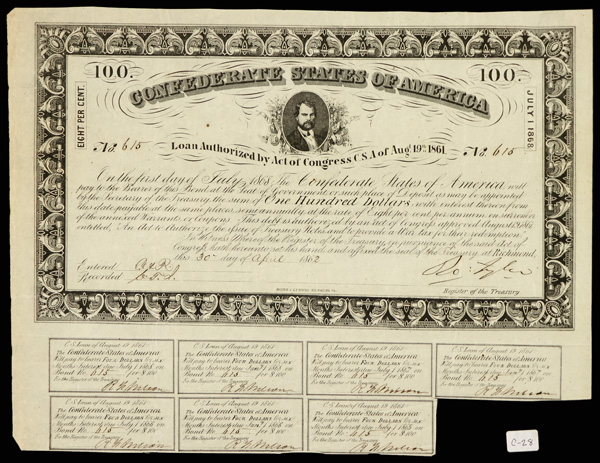 100.
100.
CONFEDERATE STATES OF AMERICA
EIGHT PER CENT.
JULY 1 1868
No. 615
No. 615
Loan Authorized by Act of Congress C.S.A of Aug. 19th 1861.
On the first day of July, 1868 The Confederate States of America will
pay to the Bearer of this Bond at the seat of Government or such place of Deposit as may be appointed
by the Secretary of the Treasury the sum of One Hundred Dollars with interest thereon from
this date payable at the same place semi annually at the rate of Eight per cent per annum on surrender
of the annexed Warrants or Coupons. This debt is authorized by an Act of Congress approved August 19, 1861
entitled, "An Act to authorize the issue of Treasury Notes and to provide a War tax for their redemption".
In Witness Whereof the Register of the Treasury, in pursuance of the said Act of
Congress, hath hereunto set his hand and affixed the seal of the Treasury at Richmond,
this 30 day of April 1862
Entered
Recorded
Ro. Tyler
Register of the Treasury
C.S Loan of August 19 1861
The Confederate States of America
Will pay to bearer FOUR DOLLARS for six
Months Interest due July 1 1868 on
Bond No. 615 for $ 100
For the Register of the Treasury
C.S Loan of August 19 1861
The Confederate States of America
Will pay to bearer FOUR DOLLARS for six
Months Interest due Jan'y 1 1868 on
Bond No. 615 for $ 100
For the Register of the Treasury
C.S Loan of August 19 1861
The Confederate States of America
Will pay to bearer FOUR DOLLARS for six
Months Interest due July 1 1867 on
Bond No. 615 for $ 100
For the Register of the Treasury
C.S Loan of August 19 1861
The Confederate States of America
Will pay to bearer FOUR DOLLARS for six
Months Interest due Jan'y 1 1867 on
Bond No. 615 for $ 100
For the Register of the Treasury
C.S Loan of August 19 1861
The Confederate States of America
Will pay to bearer FOUR DOLLARS for six
Months Interest due July 1 1866 on
Bond No. 615 for $ 100
For the Register of the Treasury
C.S Loan of August 19 1861
The Confederate States of America
Will pay to bearer FOUR DOLLARS for six
Months Interest due Jan'y 1 1866 on
Bond No. 615 for $ 100
For the Register of the Treasury
C.S Loan of August 19 1861
The Confederate States of America
Will pay to bearer FOUR DOLLARS for six
Months Interest due July 1 1865 on
Bond No. 615 for $ 100
For the Register of the Treasury
C-28